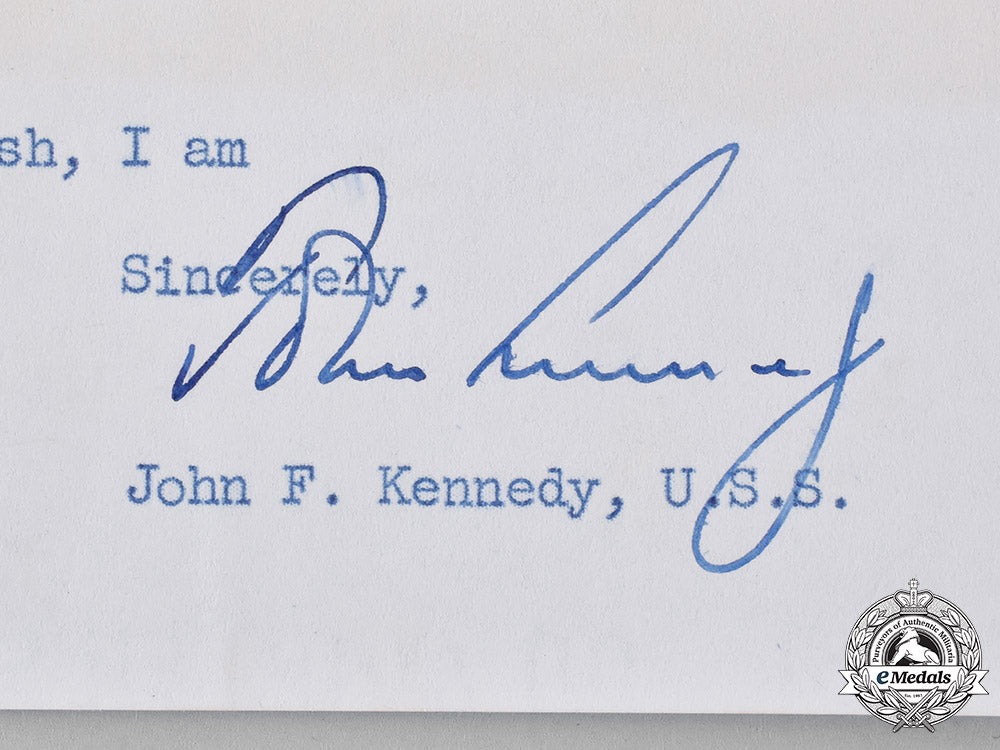 sh, I am
Sincerely,
John Kennedy
John F. Kennedy, U.S.S.
Purveyors of Authentic Militaria
eMedals
Est. 1967